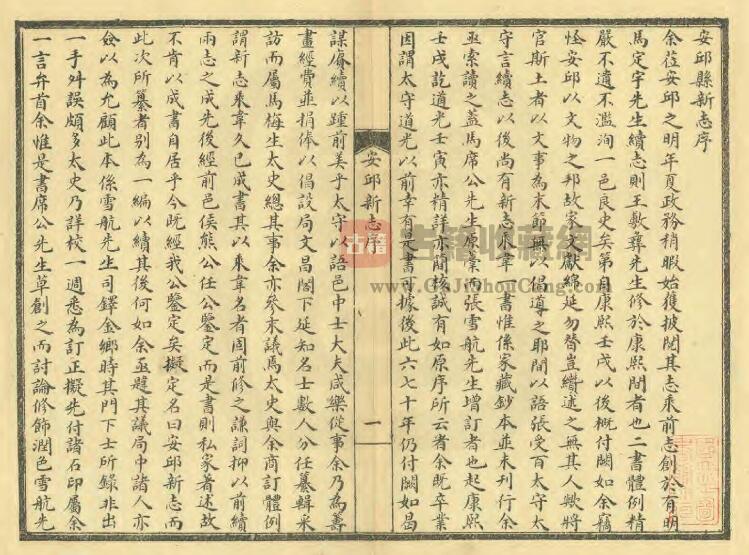 安邱縣新志序
余莅安邱之明年夏政務稍暇始獲披閱其志乘前志創於有明
馬定宇先生續志則王斆彝先生修於康熙間者也二書體例精
嚴不遺不濫洵一邑良史矣第自康熙壬戌以後概付闕如余竊
怪安邱以文物之邦故家文獻緜延勿替豈纘述之無其人歟將
官斯土者以文事為末節無以倡導之耶間以語張受百太守太
守言續志以後尚有新志乘韋一書惟係家藏鈔本並未刊行余
亟索讀之蓋馬席公先生原藁而張雪航先生增訂者也起康熙
壬戌訖道光壬寅亦精詳亦簡核誠有如原序所云者余既卒業
因謂太守道光以前幸有是書可據後此六七十年仍付闕如曷
安邱新志序
一
謀賡續以踵前美乎太守以語邑中士大夫咸樂從事余乃為籌
畫經費並捐俸以倡設局文昌閣下延知名士數人分任纂輯采
訪而屬馬梅生太史總其事余亦參末議馬太史與余商訂體例
謂新志乘韋久已成書其以乘韋名者固前修之謙詞抑以前續
兩志之成先後經前邑侯熊公任公鑒定而是書則私家著述故
不肯以成書自居乎今既經我公鑒定矣擬定名曰安邱新志而
此次所纂者別為一編以續其後何如余亟韙其議局中諸人亦
僉以為允顧此本係雪航先生司鐸金鄉時其門下士所錄非出
一手舛誤頗多太史乃詳校一週悉為訂正擬先付諸石印屬余
一言弁首余惟是書席公先生草創之而討論修飾潤色雪航先
古籍
古籍收藏網
www.GuJiShouCang.com